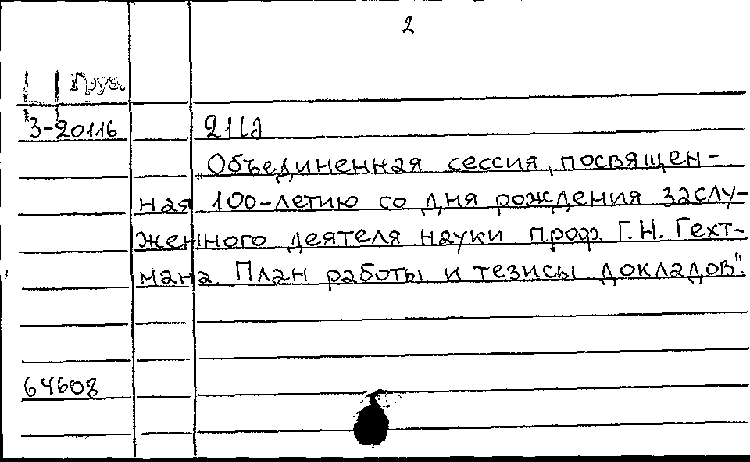 2
Груз.
3-20116
Объединенная сессия, посвящен-
ная 100-летию со дня рождения заслу-
женного деятеля науки проф. Г.Н. Гехт-
мана. План работы и тезисы докладов".
64608